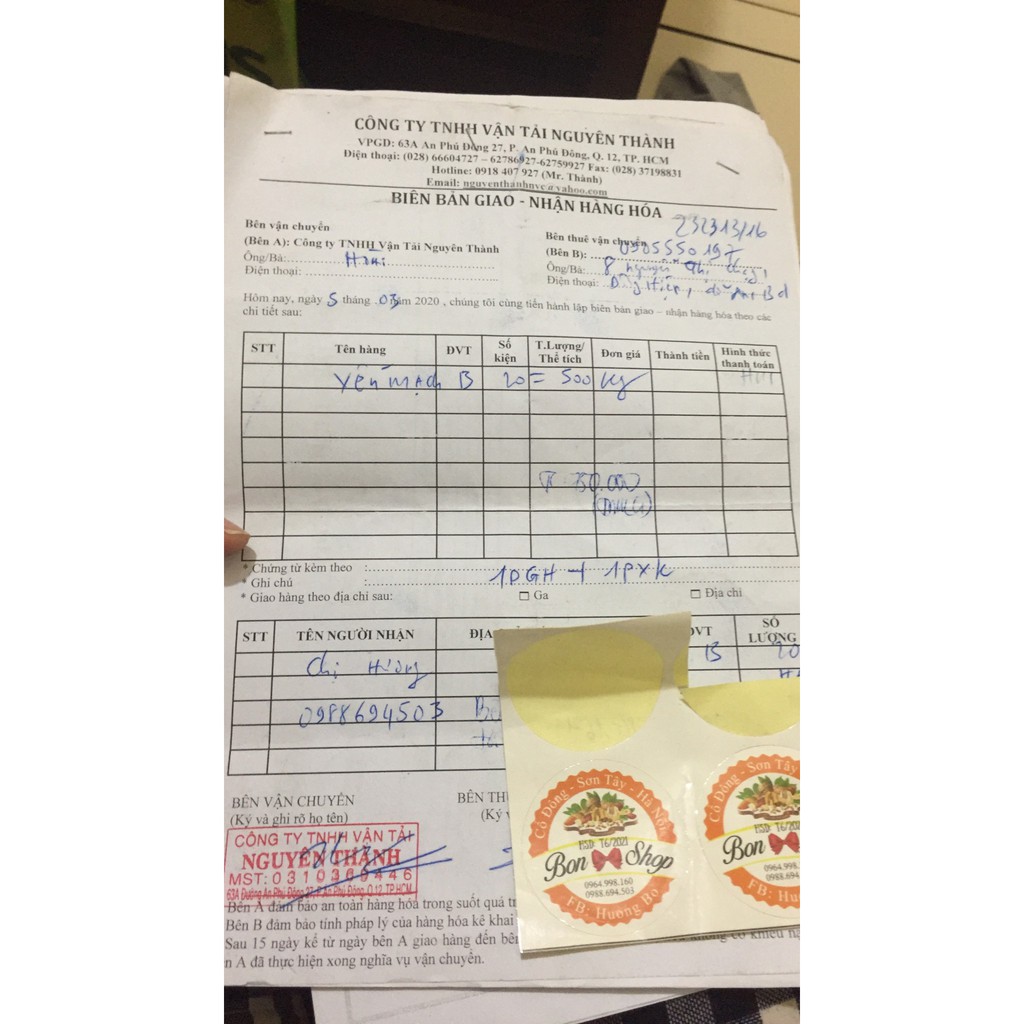 CÔNG TY TNHH VẬN TẢI NGUYÊN THÀNH
VPGD: 63A An Phú Đông 27, P. An Phú Đông, Q. 12, TP. HCM
Điện thoại: (028) 66604727 – 62786927-62759927 Fax: (028) 37198831
Hotline: 0918 407 927 (Mr. Thành)
Email: nguyenthanhnvc@yahoo.com
BIÊN BẢN GIAO - NHẬN HÀNG HÓA
232313/16
Bên vận chuyển
(Bên A): Công ty TNHH Vận Tải Nguyên Thành
Ông/Bà:
Điện thoại:
Bên thuê vận chuyển
(Bên B):
Ông/Bà: 8 Nguyễn Thị
Điện thoại:
Hôm nay, ngày 5 tháng 03 năm 2020 , chúng tôi cùng tiến hành lập biên bản giao – nhận hàng hóa theo các
chi tiết sau:
STT Tên hàng ĐVT Số kiện T.Lượng/ Thể tích Đơn giá Thành tiền Hình thức thanh toán
Yến mạch B 20 = 500 kg
* Chứng từ kèm theo : 1PGH + 1PXK
* Ghi chú :
* Giao hàng theo địa chỉ sau: Ga Địa chỉ
STT TÊN NGƯỜI NHẬN ĐỊA ĐVT SỐ LƯỢNG
Chị Hương B 20
0988694503
BÊN VẬN CHUYỂN
(Ký và ghi rõ họ tên)
BÊN TH
(Ký v
CÔNG TY TNHH VẬN TẢI
NGUYÊN THÀNH
MST: 0310360446
63A Đường An Phú Đông 27, P. An Phú Đông, Q.12, TP.HCM
Bên A đảm bảo an toàn hàng hóa trong suốt quá tr
Bên B đảm bảo tính pháp lý của hàng hóa kê khai
Sau 15 ngày kể từ ngày bên A giao hàng đến bên
n A đã thực hiện xong nghĩa vụ vận chuyển.
Cổ Đông - Sơn Tây - Hà Nội
HSD: 16/2021
Bon Shop
0964.998.160
0988.694.503
FB: Huong Bo
Cổ Đông - Sơn Tây
HSD: 16/202
Bon
0964.998.
0988.694.
FB: Hu